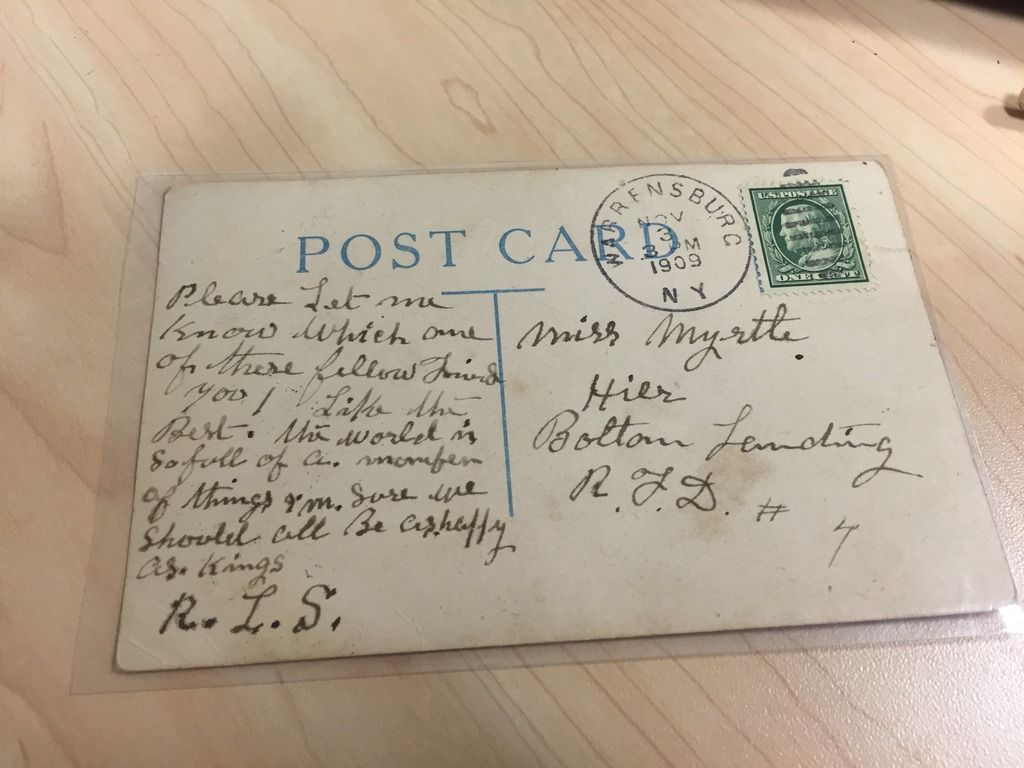 POST CARD
WARRENSBURG
NOV
3
3 M
1909
N Y
U.S. POSTAGE
ONE CENT
Please Let me
Know Which one
of these fellow
you! Like the
Best. the world is
so full of a. number
of things & m. Sure we
should all Be as happy
as. Kings
R. L. S.
Miss Myrtle
Hier
Bolton Landing
R. F. D. # 4